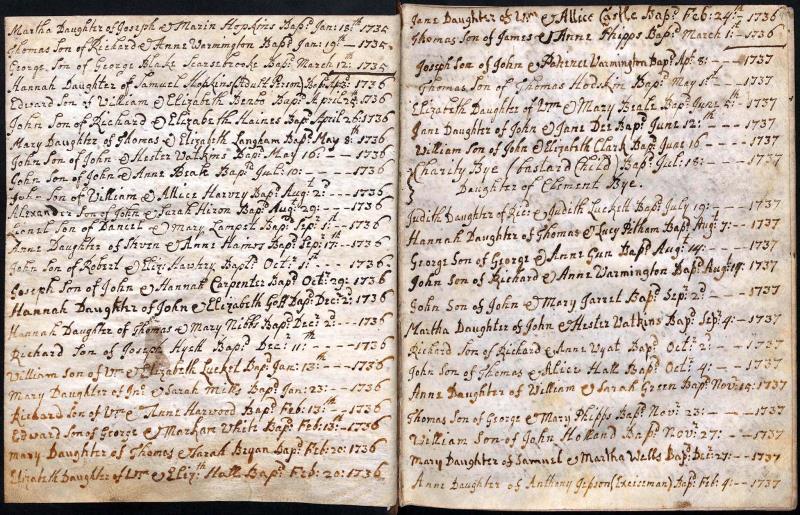 Martha Daughter of Joseph & Marin Hopkins Bapt Jan: 18th 1735
Thomas Son of Richard & Anne Warmington Bapt Jan: 19th — 1735.
George Son of George Blake Scarsebrooke Bapt March 12: 1735
Hannah Daughter of Samuel Hopkins (Adult Person) Bapt 1736
Edward Son of William & Elizabeth Benton Bapt April 25 1736
John Son of Richard & Elizabeth Haines Bapt April 26: 1736
Mary Daughter of Thomas & Elizabeth Langham Bapt May 8th: 1736
John Son of John & Hester Watkins Bapt May 16: — — 1736
John Son of John & Anne Beak Bapt Jul: 10: — — 1736
John Son of William & Allice Harvey Bapt Augt 2d — 1736
Alexander Son of John & Sarah Heron Bapt Aug: 29: — — 1736
Lionel Son of Daniel & Mary Lampet Bapt Sep: 1st — 1736
Anne Daughter of Steven & Anne Haines Bapt Sep: 17: — — 1736
John Son of Robert & Eliz: Hawtrey Bapt Octr 1st — 1736
Joseph Son of John & Hannah Carpenter Bapt Octr 29: 1736
Hannah Daughter of John & Elizabeth Goff Bapt Decr 2: 1736
Hannah Daughter of Thomas & Mary Nibbs Bapt Decr 2d: — — 1736
Richard Son of Joseph Hyett Bapt Decr 11th: — — 1736
William Son of Wm & Elizabeth Lucket Bapt Jan: 13: — — 1736
Mary Daughter of Jno & Sarah Mills Bapt Jan: 23: — — 1736
Richard Son of Wm & Anne Harwood Bapt Feb: 13: — — 1736
Edward Son of George & Markam White Bapt Feb: 13: — 1736
Mary Daughter of Thomas & Sarah Bryan Bapt Feb: 20: 1736
Elizabeth Daughter of Wm & Eliz: Hall Bapt Feb: 20: 1736
Jane Daughter of Wm & Allice Castle Bapt Feb: 24th — 1736
Thomas Son of James & Anne Phipps Bapt March 1: — 1736
Joseph Son of John & Patience Warmington Bapt Apr: 8: — — 1737
Thomas Son of Thomas Hodskin Bapt May 1st — — 1737
Elizabeth Daughter of Wm & Mary Beale Bapt June 5th: — 1737
Jane Daughter of John & Jane Dee Bapt June 12th: — — 1737
William Son of John & Elizabeth Clark Bapt June 16 — — 1737
Charity Bye (bastard Child) Bapt Jul: 18: — — 1737
Daughter of Clement Bye.
Judith Daughter of Rice & Judith Luckett Bapt July 19: — — 1737
Hannah Daughter of Thomas & Lucy Altham Bapt Augt 7: — — 1737
George Son of George & Anne Gun Bapt Aug: 14: — — 1737
John Son of Richard & Anne Warmington Bapt Augt 19: 1737
John Son of John & Mary Jarret Bapt Sepr 2d: — — 1737
Martha Daughter of John & Hester Watkins Bapt Sepr 4: — 1737
Richard Son of Richard & Anne Wyat Bapt Octr 2: — 1737
John Son of Thomas & Alice Hall Bapt Oct: 4: — — 1737
Anne Daughter of William & Sarah Green Bapt Novr 15: 1737
Thomas Son of George & Mary Phipps Bapt Novr 23: — — 1737
William Son of John Holland Bapt Novr 27: — — 1737
Mary Daughter of Samuel & Martha Wells Bapt Dec: 27: — 1737
Anne Daughter of Anthony Jepson (Exciseman) Bapt Feb: 4: — 1737